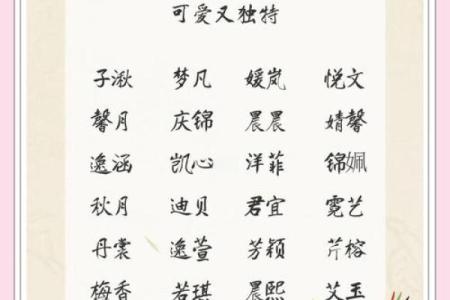 可爱又独特
子湫 梦凡 媛岚 悦文
馨月 庆锦 晨晨 婧馨
逸涵 凯心 洋菲 锦姵
秋月 迪贝 君宜 霓艺
丹裳 逸萱 芳颖 芹榕
梅香 若琪 晨熙 艾玉